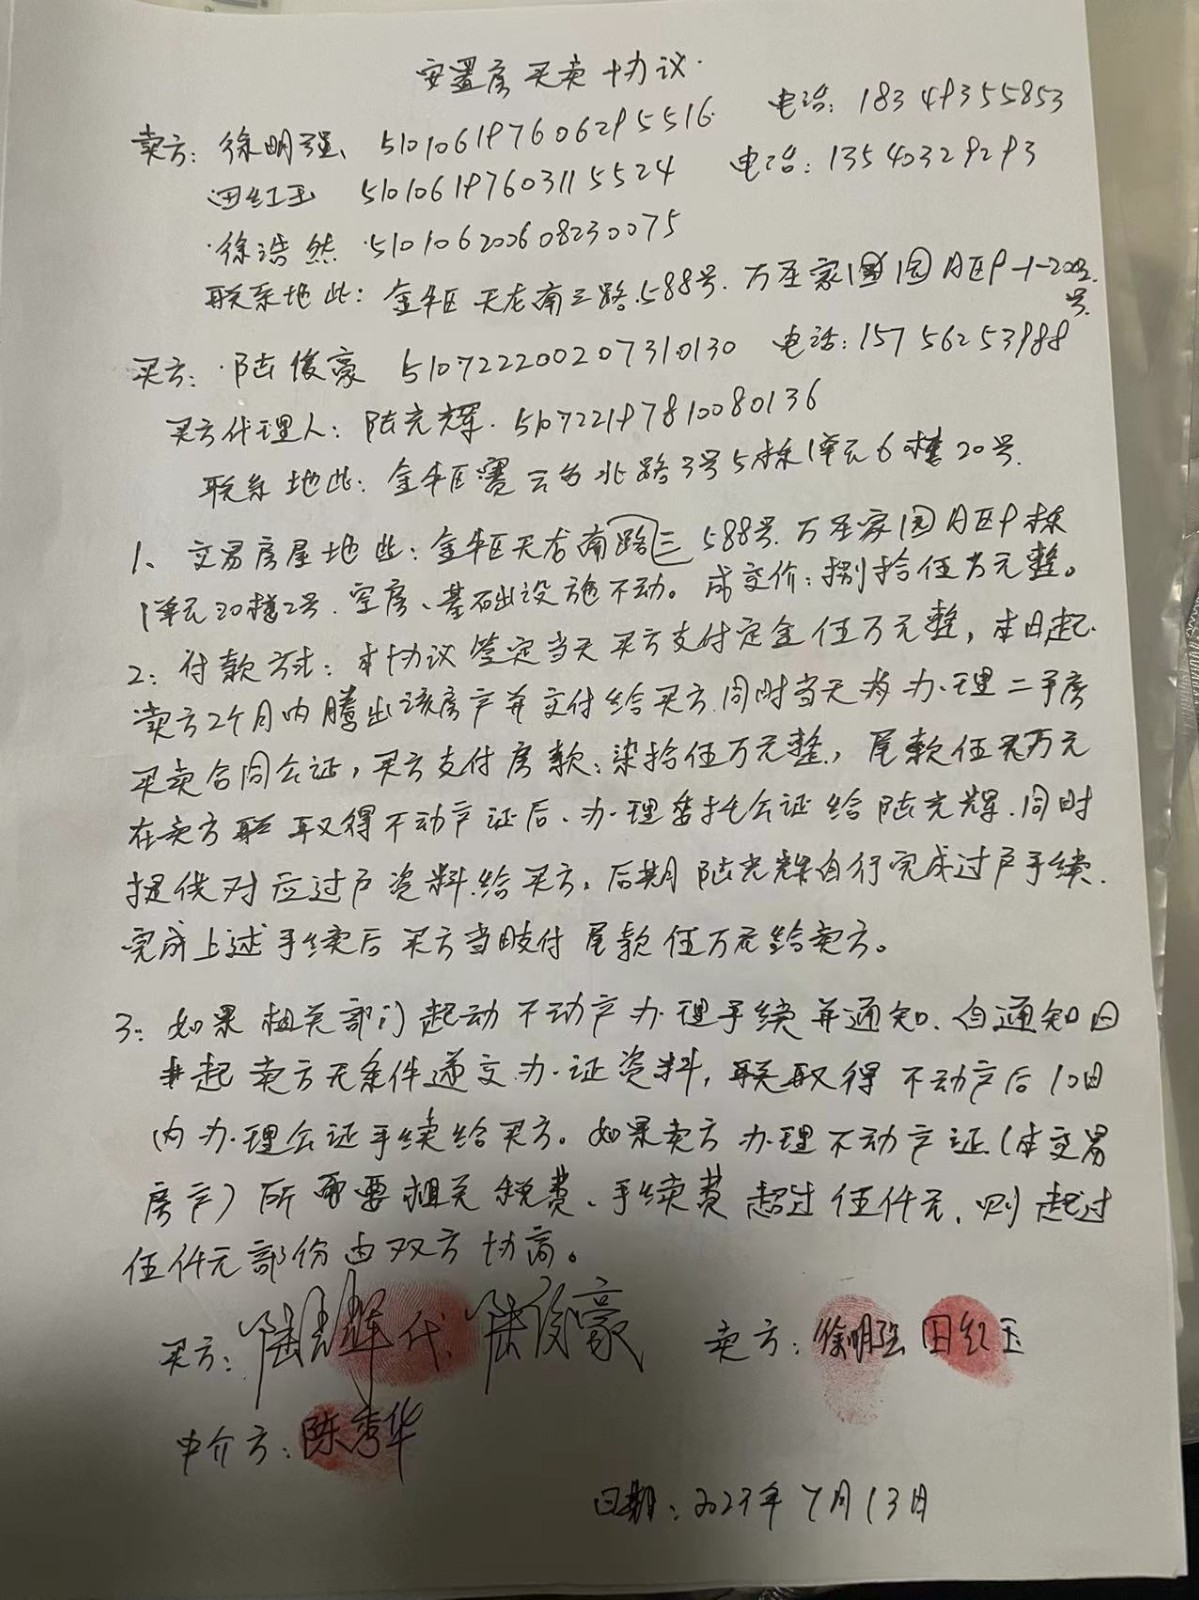 安置房买卖协议
卖方：徐明强、510106197606295516 电话：18349355853
田红玉 510106197603115524 电话：13540329293
徐浩然 510106200608230075
联系地址：金牛区天龙南三路588号.万圣家园A区9-1-2002号.
买方：陆俊豪 510722200207310130 电话：15756253988
买方代理人：陆光辉. 510722197810080136
联系地址：金牛区赛云台北路3号5栋1单元6楼20号.
1、交易房屋地址：金牛区天龙南路三588号.万圣家园A区9栋
1单元20楼2号.空房、基础设施不动。成交价：捌拾伍万元整。
2：付款方式：本协议签定当天买方支付定金伍万元整，本日起
卖方2个月内腾出该房产并交付给买方.同时当天办理二手房
买卖合同公证，买方支付房款：柒拾伍万元整，尾款伍万元
在卖方取得不动产证后、办理委托公证给陆光辉.同时
提供对应过户资料给买方，后期陆光辉自行完成过户手续.
完成上述手续后买方当时支付尾款伍万元给卖方。
3：如果相关部门起动不动产办理手续并通知.自通知日
起卖方无条件递交办证资料，取得不动产后10日
内办理公证手续给买方。如果卖方办理不动产证（本交易
房产）所需要相关税费、手续费超过伍仟元，则超过
伍仟元部份由双方协商。
买方：陆光辉代陆俊豪 卖方：徐明强 田红玉
中介方：陈秀华
日期：2023年7月13日